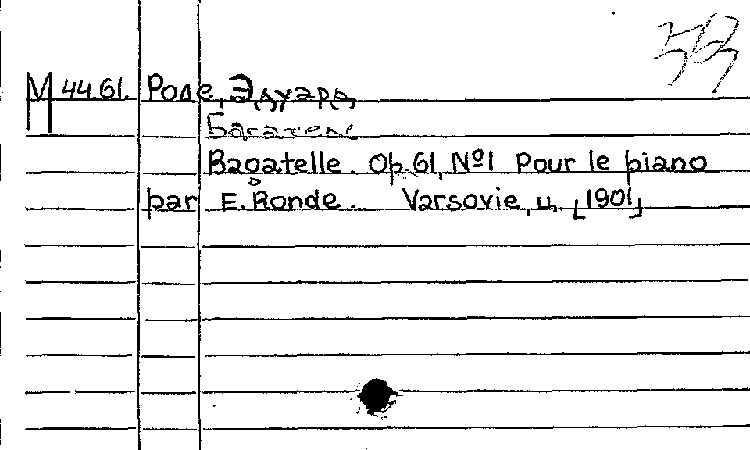 М 44.61. Роде, Эдуард
Багатель
Bagatelle. Op.61, №1 Pour le piano
par E. Ronde. Varsovie, ц. [1901]